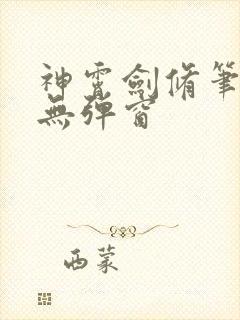 神霄劍脩筆
無彈窗
西蒙